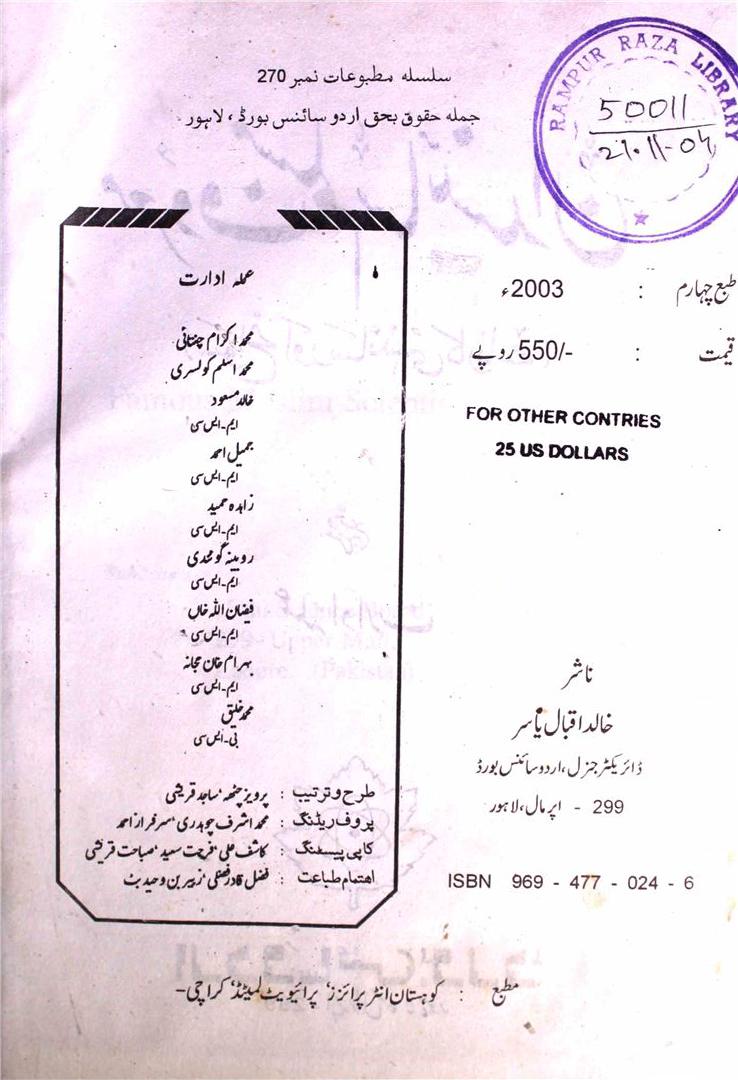 سلسلہ مطبوعات نمبر 270
جملہ حقوق بحق اردو سائنس بورڈ، لاہور
RAMPUR RAZA LIBRARY
50011
27-11-04
طبع چہارم : 2003ء
قیمت : 550/- روپے
FOR OTHER CONTRIES
25 US DOLLARS
عملہ ادارت
محمد اکرام چغتائی
محمد اسلم کولسری
خالد مسعود
ایم۔ایس سی
جمیل احمد
ایم۔ایس سی
زاہدہ حمید
ایم۔ایس سی
روبینہ گوندی
ایم۔ایس سی
فیضان اللہ خاں
ایم۔ایس سی
بہرام خان مجانہ
ایم۔ایس سی
محمد خلیق
بی۔ایس سی
طرح و ترتیب : پرویز چٹھہ، ساجد قریشی
پروف ریڈنگ : محمد اشرف چوہدری، سرفراز احمد
کاپی پیسٹنگ : کاشف علی، فرحت سعید، صباحت قریشی
اہتمام طباعت : فضل قادر فضلی، زبیر بن وحید بٹ
ناشر
خالد اقبال یاسر
ڈائریکٹر جنرل، اردو سائنس بورڈ
299 - اپر مال، لاہور
ISBN 969 - 477 - 024 - 6
مطبع : کوہستان انٹرپرائزز، پرائیویٹ لمیٹڈ، کراچی۔